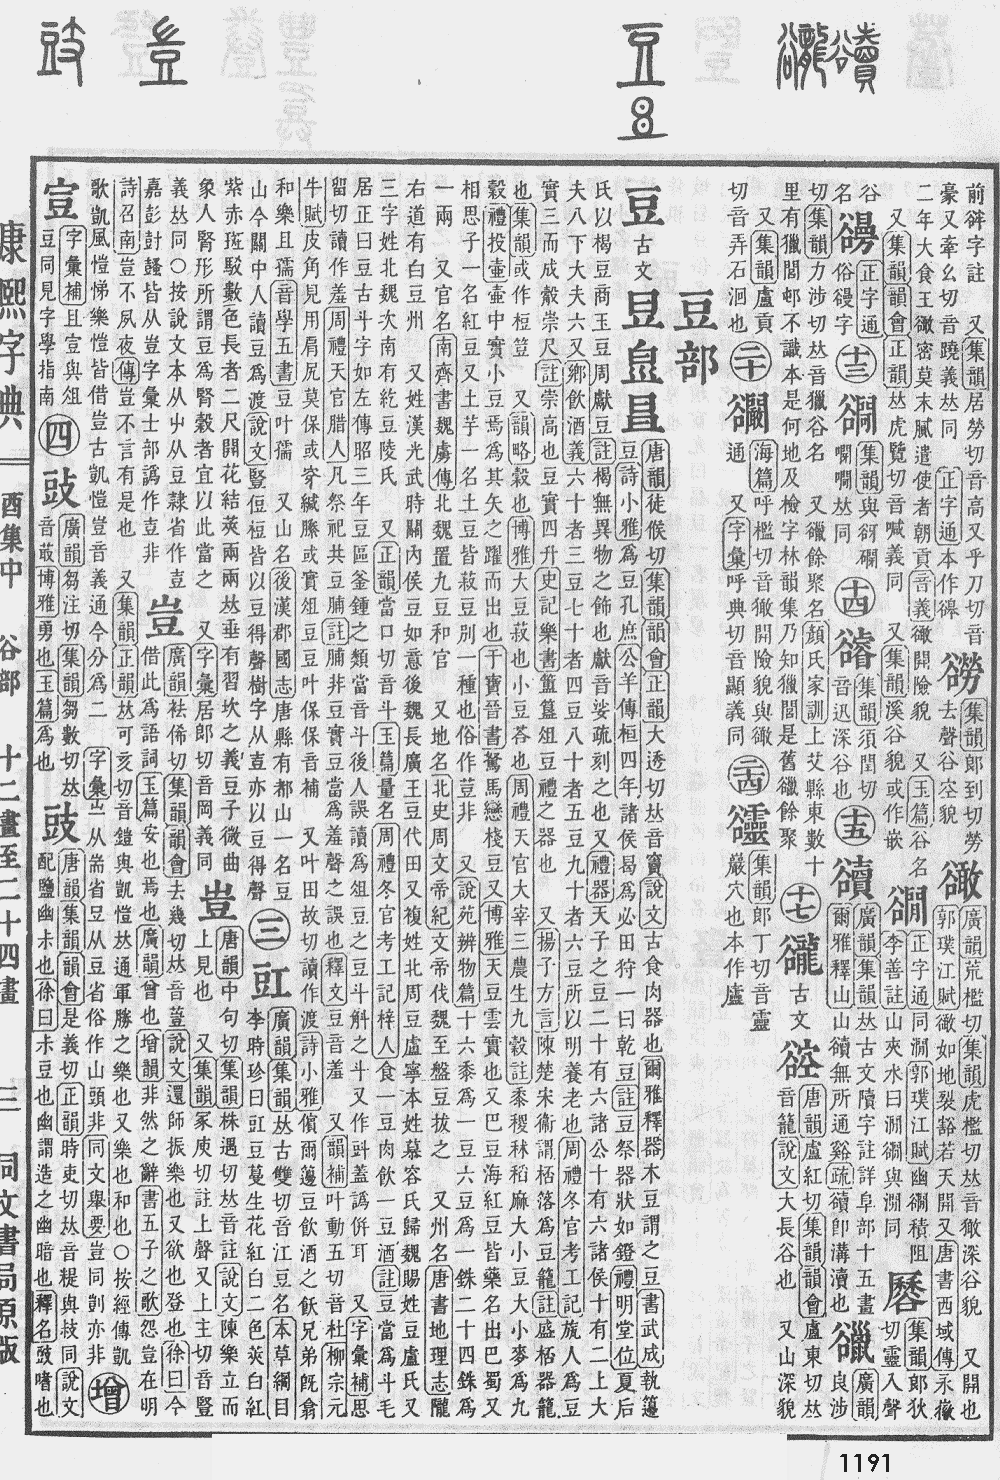 前辭字註 又集韻居勞切音高又乎刀切音豪又牽幺切音蹺義𠀤同 正字通本作
集韻郎到切勞去聲谷空貌
豃 廣韻荒檻切集韻虎檻切𠀤音㺖深谷貌 又開也 郭璞江賦豃如地裂豁若天開又唐書西域傳永徽
二年大食王豃密莫末膩遣使者朝貢音義豃開險貌 又玉篇谷名 又集韻韻會正韻𠀤虎覽切音喊義同 又集韻溪谷貌或作嵌
正字通同澗郭璞江賦幽 積阻李善註山夾水曰澗 與澗同
集韻郎狄切靈入聲
谷名
正字通俗 字
十三
集韻與谺 同
十四
集韻須閏切音迅深谷也
十五
豄 廣韻集韻𠀤古文隫字註詳阜部十五畫 爾雅釋山山豄無所通谿疏豄卽溝瀆也
廣韻良涉切集韻力涉切𠀤音獵谷名 又 餘聚名顏氏家訓上艾縣東數十里有獵閭邨不識本是何地及檢字林韻集乃知獵閭是舊 餘聚 又集韻盧貢切音弄石洄也
十七
豅 古文 唐韻盧紅切集韻韻會盧東切𠀤音龍說文大長谷也 又山深貌
二十
海篇呼檻切音㺖開險貌與豃通 又字彙呼典切音顯義同
二四
集韻郎丁切音靈巖穴也本作
豆部
豆 古文
唐韻徒候切集韻韻會正韻大透切𠀤音竇說文古食肉器也爾雅釋器木豆謂之豆書武成執籩豆詩小雅爲豆孔庶公羊傳桓四年諸侯曷爲必田狩一曰乾豆註豆祭器狀如鐙禮明堂位夏后
氏以楬豆商玉豆周獻豆註楬無異物之飾也獻音娑疏刻之也又禮器天子之豆二十有六諸公十有六諸侯十有二上大
夫八下大夫六又鄉飲酒義六十者三豆七十者四豆八十者五豆九十者六豆所以明養老也周禮冬官考工記瓬人爲豆
實三而成觳崇尺註崇高也豆實四升史記樂書簠簋俎豆禮之器也 又揚子方言陳楚宋衞謂桮落爲豆籠註盛桮器籠
也集韻或作梪䇺 又韻略穀也博雅大豆菽也小豆荅也周禮天官大宰三農生九穀註黍稷秫稻麻大小豆大小麥爲九
穀禮投壷壷中實小豆焉爲其矢之躍而出也于寶晉書駑馬戀棧豆又博雅天豆雲實也又巴豆海紅豆皆藥名出巴蜀又
相思子一名紅豆又土芋一名土豆皆菽豆別一種也俗作荳非 又說苑辨物篇十六黍爲一豆六豆爲一銖二十四銖爲
一兩 又官名南齊書魏虜傳北魏置九豆和官 又地名北史周文帝紀文帝伐魏至盤豆拔之 又州名唐書地理志隴
右道有白豆州 又姓漢光武時關內侯豆如意後魏長廣王豆代田又複姓北周豆盧寧本姓慕容氏歸魏賜姓豆盧氏又
三字姓北魏次南有紇豆陵氏 又正韻當口切音斗玉篇量名周禮冬官考工記梓人食一豆肉飲一豆酒註豆當爲斗毛
居正曰豆古斗字如左傳昭三年豆區釜鍾之類當音斗後人誤讀爲俎豆之豆斗斛之斗又作㪷蓋譌倂耳 又字彙補思
留切讀作羞周禮天官腊人凡祭祀共豆脯註脯非豆實豆當爲羞聲之誤也釋文豆音羞 又韻補叶動五切音杜柳宗元
牛賦皮角見用肩尻莫保或穿緘縢或實俎豆豆叶保保音補 又叶田故切讀作渡詩小雅儐爾籩豆飲酒之飫兄弟旣翕
和樂且孺音學五書豆叶孺 又山名後漢郡國志唐縣有都山一名豆
山今關中人讀豆爲渡說文豎侸梪皆以豆得聲樹字从壴亦以豆得聲
三
豇 廣韻集韻𠀤古雙切音江豆名本草綱目李時珍曰豇豆蔓生花紅白二色莢白紅
紫赤斑駁數色長者二尺開花結莢兩兩𠀤垂有習坎之義豆子微曲象人腎形所謂豆爲腎穀者宜以此當之 又字彙居郞切音岡義同
壴 唐韻中句切集韻株遇切𠀤音註說文陳樂立而上見也 又集韻冢庾切註上聲又上主切音豎
義𠀤同○按說文本从屮从豆隷省作壴嘉彭尌鼖皆从壴字彙士部譌作壴非
豈 廣韻袪俙切集韻韻會去幾切𠀤音䔇說文還師振樂也又欲也登也徐曰今借此爲語詞玉篇安也焉也廣韻曾也增韻非然之辭書五子之歌怨豈在明
詩召南豈不夙夜傳豈不言有是也 又集韻正韻𠀤可亥切音鎧與凱愷𠀤通軍勝之樂也又樂也和也○按經傳凱歌凱風愷悌樂愷皆借豈古凱愷豈音義通今分爲二 字彙 从耑省豆从豆省俗作山頭非同文舉要豈同剴亦非
增
䇺 字彙補且宣與俎豆同見字學指南
四
豉 廣韻芻注切集韻芻數切𠀤音菆博雅勇也玉篇爲也
豉 唐韻集韻韻會是義切正韻時吏切𠀤音禔與䜴同說文配鹽幽尗也徐曰尗豆也幽謂造之幽暗也釋名豉嗜也
康熙字典
酉集中 谷部 十二畫至二十四畫
三 同文書局原版
1191